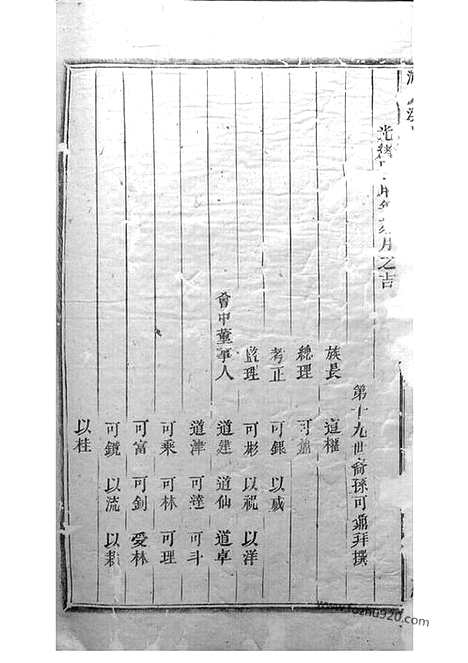 光緒 年 月之吉
第十九世裔孫可鼎拜撰
族長 道權
總理 可
考正 可銀 以威
監理 可彬 以祝 以洋
會中董事人 道建 道仙 道卓
道津 可達 可斗
可乘 可林 可理
可富 可釗 愛林
可鏡 以流 以
以桂
www.fozhu920.com